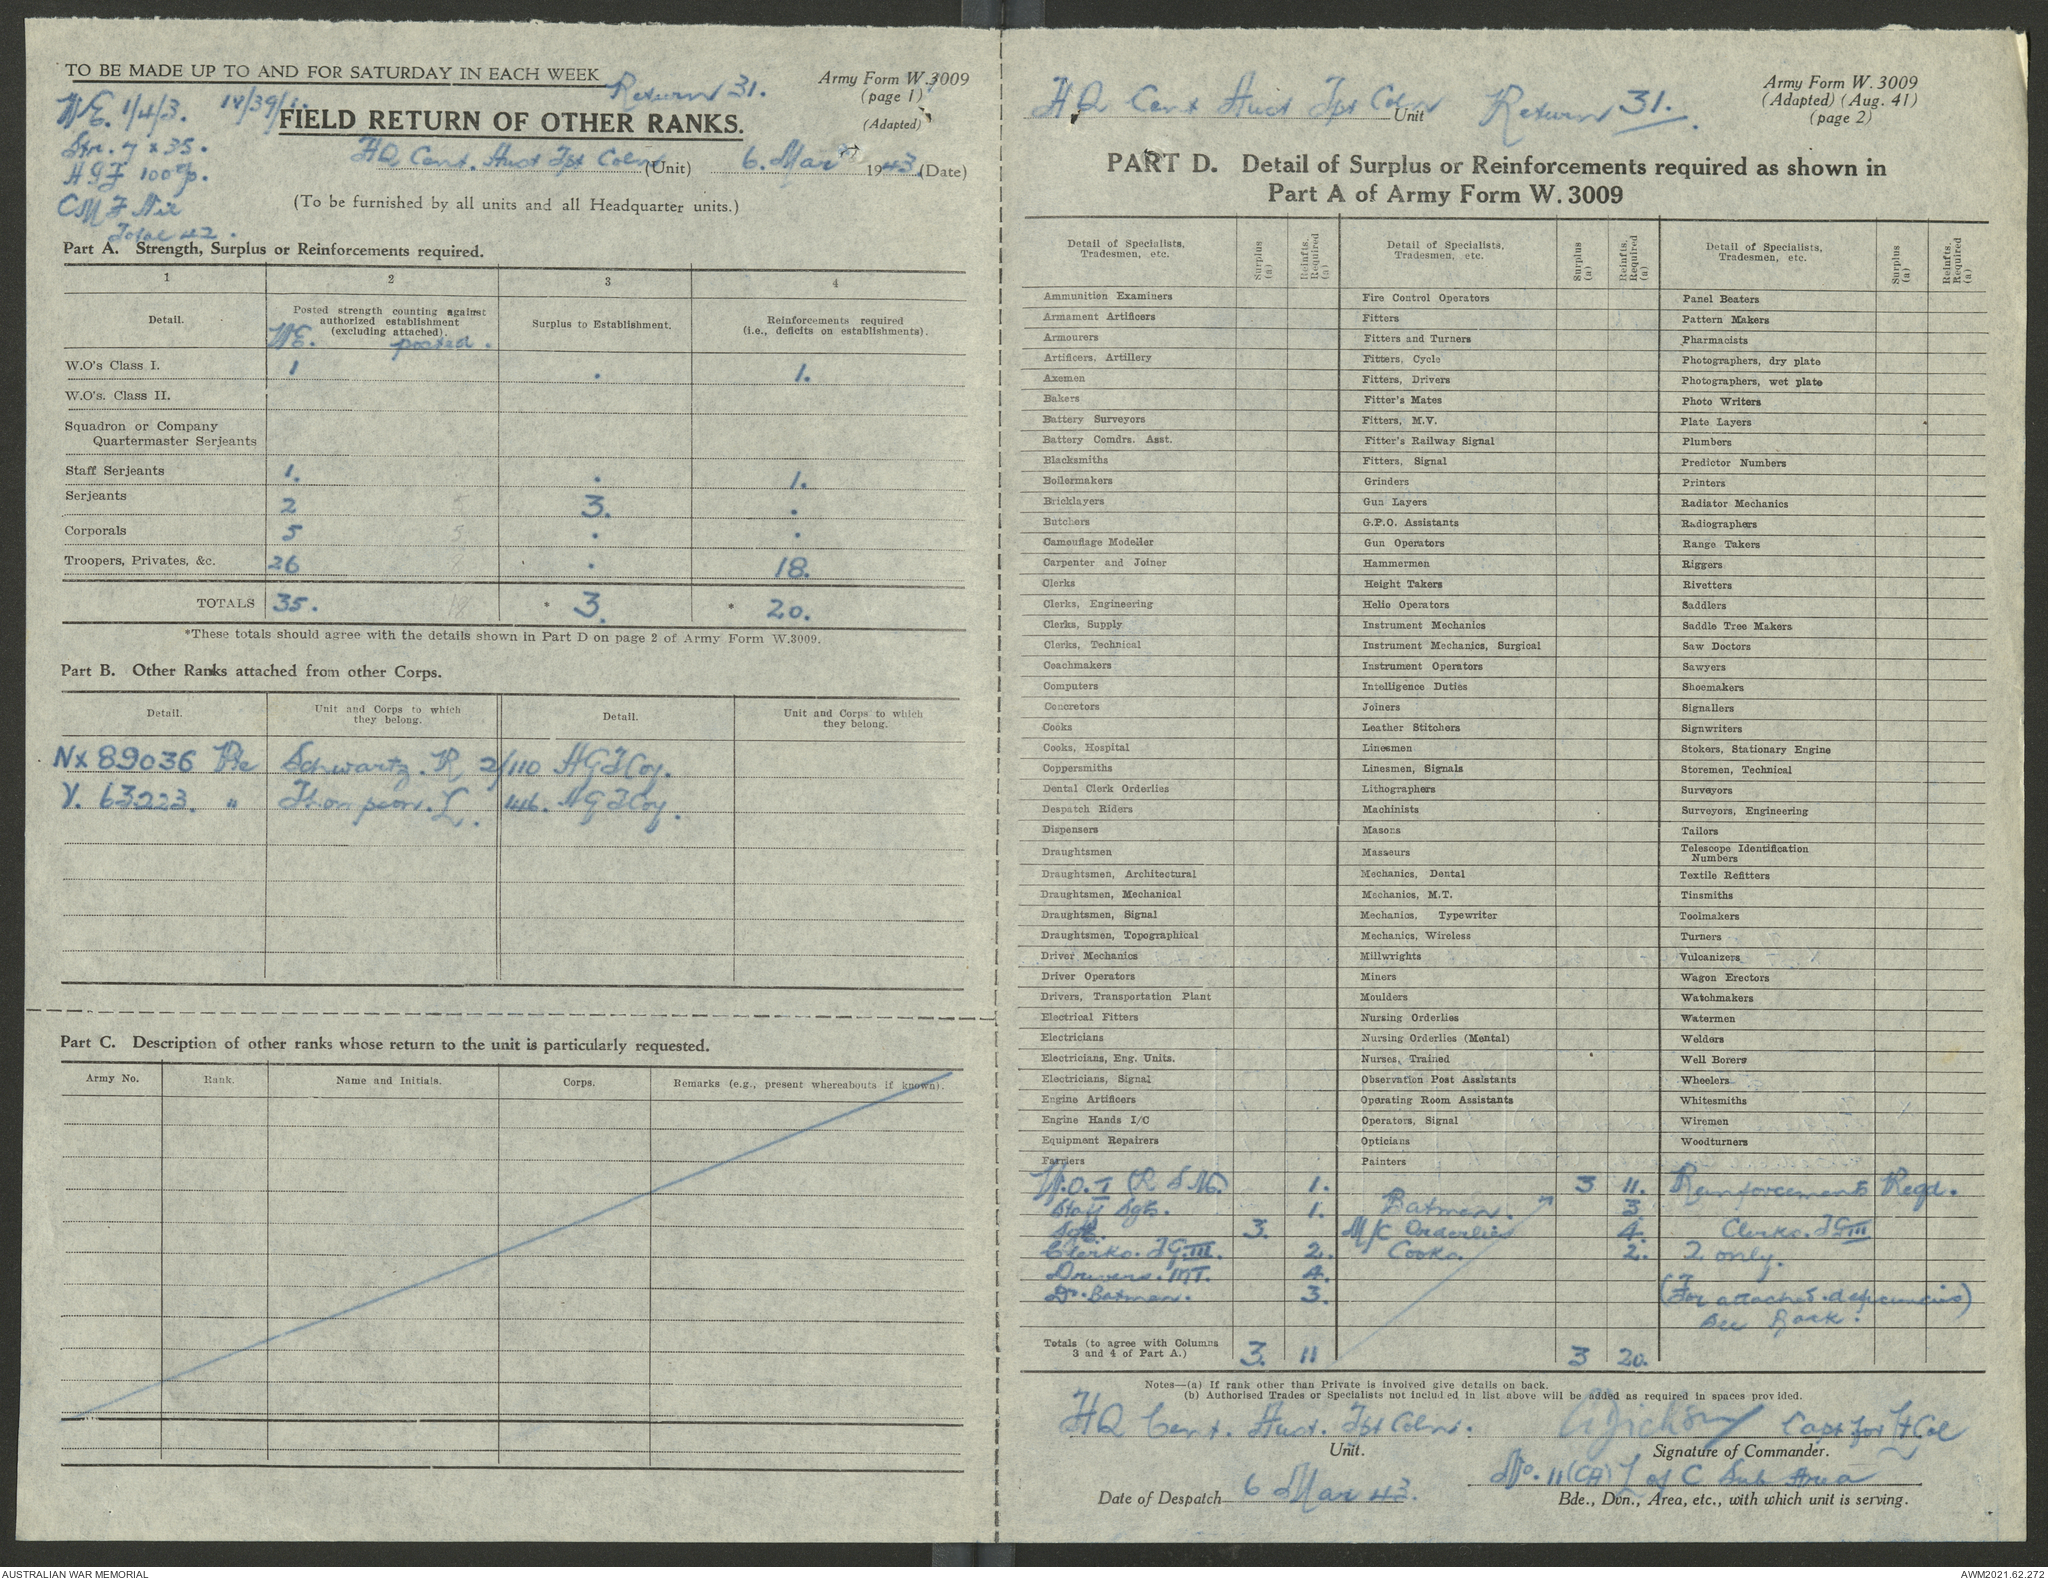 TO BE MADE UP TO AND FOR SATURDAY IN EACH WEEK
Return 31.
Army Form W.3009
(page 1)
(Adapted)
WE. 1/4/3. 1v/39/1.
FIELD RETURN OF OTHER RANKS.
Str. 7 x 35.
HQ Cent. Aust Tpt Coln (Unit) 6. Mar 1943 (Date)
AGF 100%.
CMF Nil
Total 42.
(To be furnished by all units and all Headquarter units.)
Part A. Strength, Surplus or Reinforcements required.
1 2 3 4
Detail.
Posted strength counting against authorized establishment (excluding attached).
WE. posted.
Surplus to Establishment.
Reinforcements required (i.e., deficits on establishments).
W.O's Class I. 1 . 1.
W.O's. Class II.
Squadron or Company
Quartermaster Serjeants
Staff Serjeants 1. . 1.
Serjeants 2 5 3. .
Corporals 5 5 . .
Troopers, Privates, &c. 26 8 . 18.
TOTALS 35. 18 * 3. * 20.
*These totals should agree with the details shown in Part D on page 2 of Army Form W.3009.
Part B. Other Ranks attached from other Corps.
Detail. Unit and Corps to which they belong. Detail. Unit and Corps to which they belong.
Nx 89036 Pte Schwartz. R 2/110 AGTCoy.
V. 63223. " Thompson. L. 446. AGTCoy.
Part C. Description of other ranks whose return to the unit is particularly requested.
Army No. Rank. Name and Initials. Corps. Remarks (e.g., present whereabouts if known).
HQ Cent Aust Tpt Coln Unit Return 31.
Army Form W. 3009
(Adapted) (Aug. 41)
(page 2)
PART D. Detail of Surplus or Reinforcements required as shown in
Part A of Army Form W. 3009
Detail of Specialists, Tradesmen, etc. Surplus (a) Reinfts. Required (a)
Detail of Specialists, Tradesmen, etc. Surplus (a) Reinfts. Required (a)
Detail of Specialists, Tradesmen, etc. Surplus (a) Reinfts. Required (a)
Ammunition Examiners Fire Control Operators Panel Beaters
Armament Artificers Fitters Pattern Makers
Armourers Fitters and Turners Pharmacists
Artificers, Artillery Fitters, Cycle Photographers, dry plate
Axemen Fitters, Drivers Photographers, wet plate
Bakers Fitter's Mates Photo Writers
Battery Surveyors Fitters, M.V. Plate Layers
Battery Comdrs. Asst. Fitter's Railway Signal Plumbers
Blacksmiths Fitters, Signal Predictor Numbers
Boilermakers Grinders Printers
Bricklayers Gun Layers Radiator Mechanics
Butchers G.P.O. Assistants Radiographers
Camouflage Modeller Gun Operators Range Takers
Carpenter and Joiner Hammermen Riggers
Clerks Height Takers Rivetters
Clerks, Engineering Helio Operators Saddlers
Clerks, Supply Instrument Mechanics Saddle Tree Makers
Clerks, Technical Instrument Mechanics, Surgical Saw Doctors
Coachmakers Instrument Operators Sawyers
Computers Intelligence Duties Shoemakers
Concretors Joiners Signallers
Cooks Leather Stitchers Signwriters
Cooks, Hospital Linesmen Stokers, Stationary Engine
Coppersmiths Linesmen, Signals Storemen, Technical
Dental Clerk Orderlies Lithographers Surveyors
Despatch Riders Machinists Surveyors, Engineering
Dispensers Masons Tailors
Draughtsmen Masseurs Telescope Identification Numbers
Draughtsmen, Architectural Mechanics, Dental Textile Refitters
Draughtsmen, Mechanical Mechanics, M.T. Tinsmiths
Draughtsmen, Signal Mechanics, Typewriter Toolmakers
Draughtsmen, Topographical Mechanics, Wireless Turners
Driver Mechanics Millwrights Vulcanizers
Driver Operators Miners Wagon Erectors
Drivers, Transportation Plant Moulders Watchmakers
Electrical Fitters Nursing Orderlies Watermen
Electricians Nursing Orderlies (Mental) Welders
Electricians, Eng. Units. Nurses, Trained Well Borers
Electricians, Signal Observation Post Assistants Wheelers
Engine Artificers Operating Room Assistants Whitesmiths
Engine Hands I/C Operators, Signal Wiremen
Equipment Repairers Opticians Woodturners
Farriers Painters
W.O. I (R S M.) 1. 3 11. Reinforcements Reqd.
Staff Sgt. 1. Batmen. 3.
Sgt. 3. M/C Orderlies 4. Clerks. TG III
Clerks. TG. III. 2. Cooks. 2. 2 only.
Drivers. MT. 4.
Do. Batmen. 3. (For attached deficiencies)
See Back.
Totals (to agree with Columns 3 and 4 of Part A.) 3. 11 3 20.
Notes—(a) If rank other than Private is involved give details on back.
(b) Authorised Trades or Specialists not included in list above will be added as required in spaces provided.
HQ Cent. Aust. Tpt Coln. Capt for Lt Col
Unit. Signature of Commander.
No. 11 (CA) L of C Sub Area
Date of Despatch 6 Mar 43. Bde., Dvn., Area, etc., with which unit is serving.
AUSTRALIAN WAR MEMORIAL
AWM2021.62.272